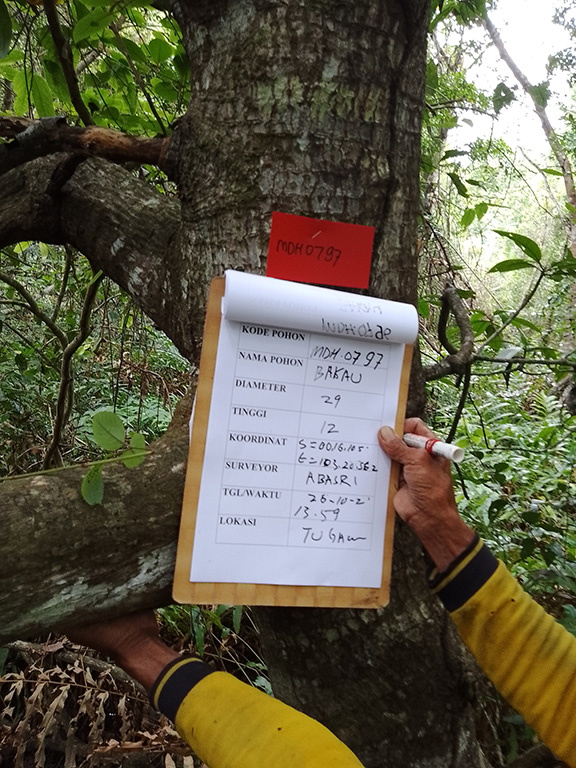 MDH0797
KODE POHON MDH 0797
NAMA POHON BAKAU
DIAMETER 29
TINGGI 12
KOORDINAT S=0016.105.
E=103.20362
SURVEYOR ABASRI
TGL/WAKTU 26-10-2
13.59
LOKASI